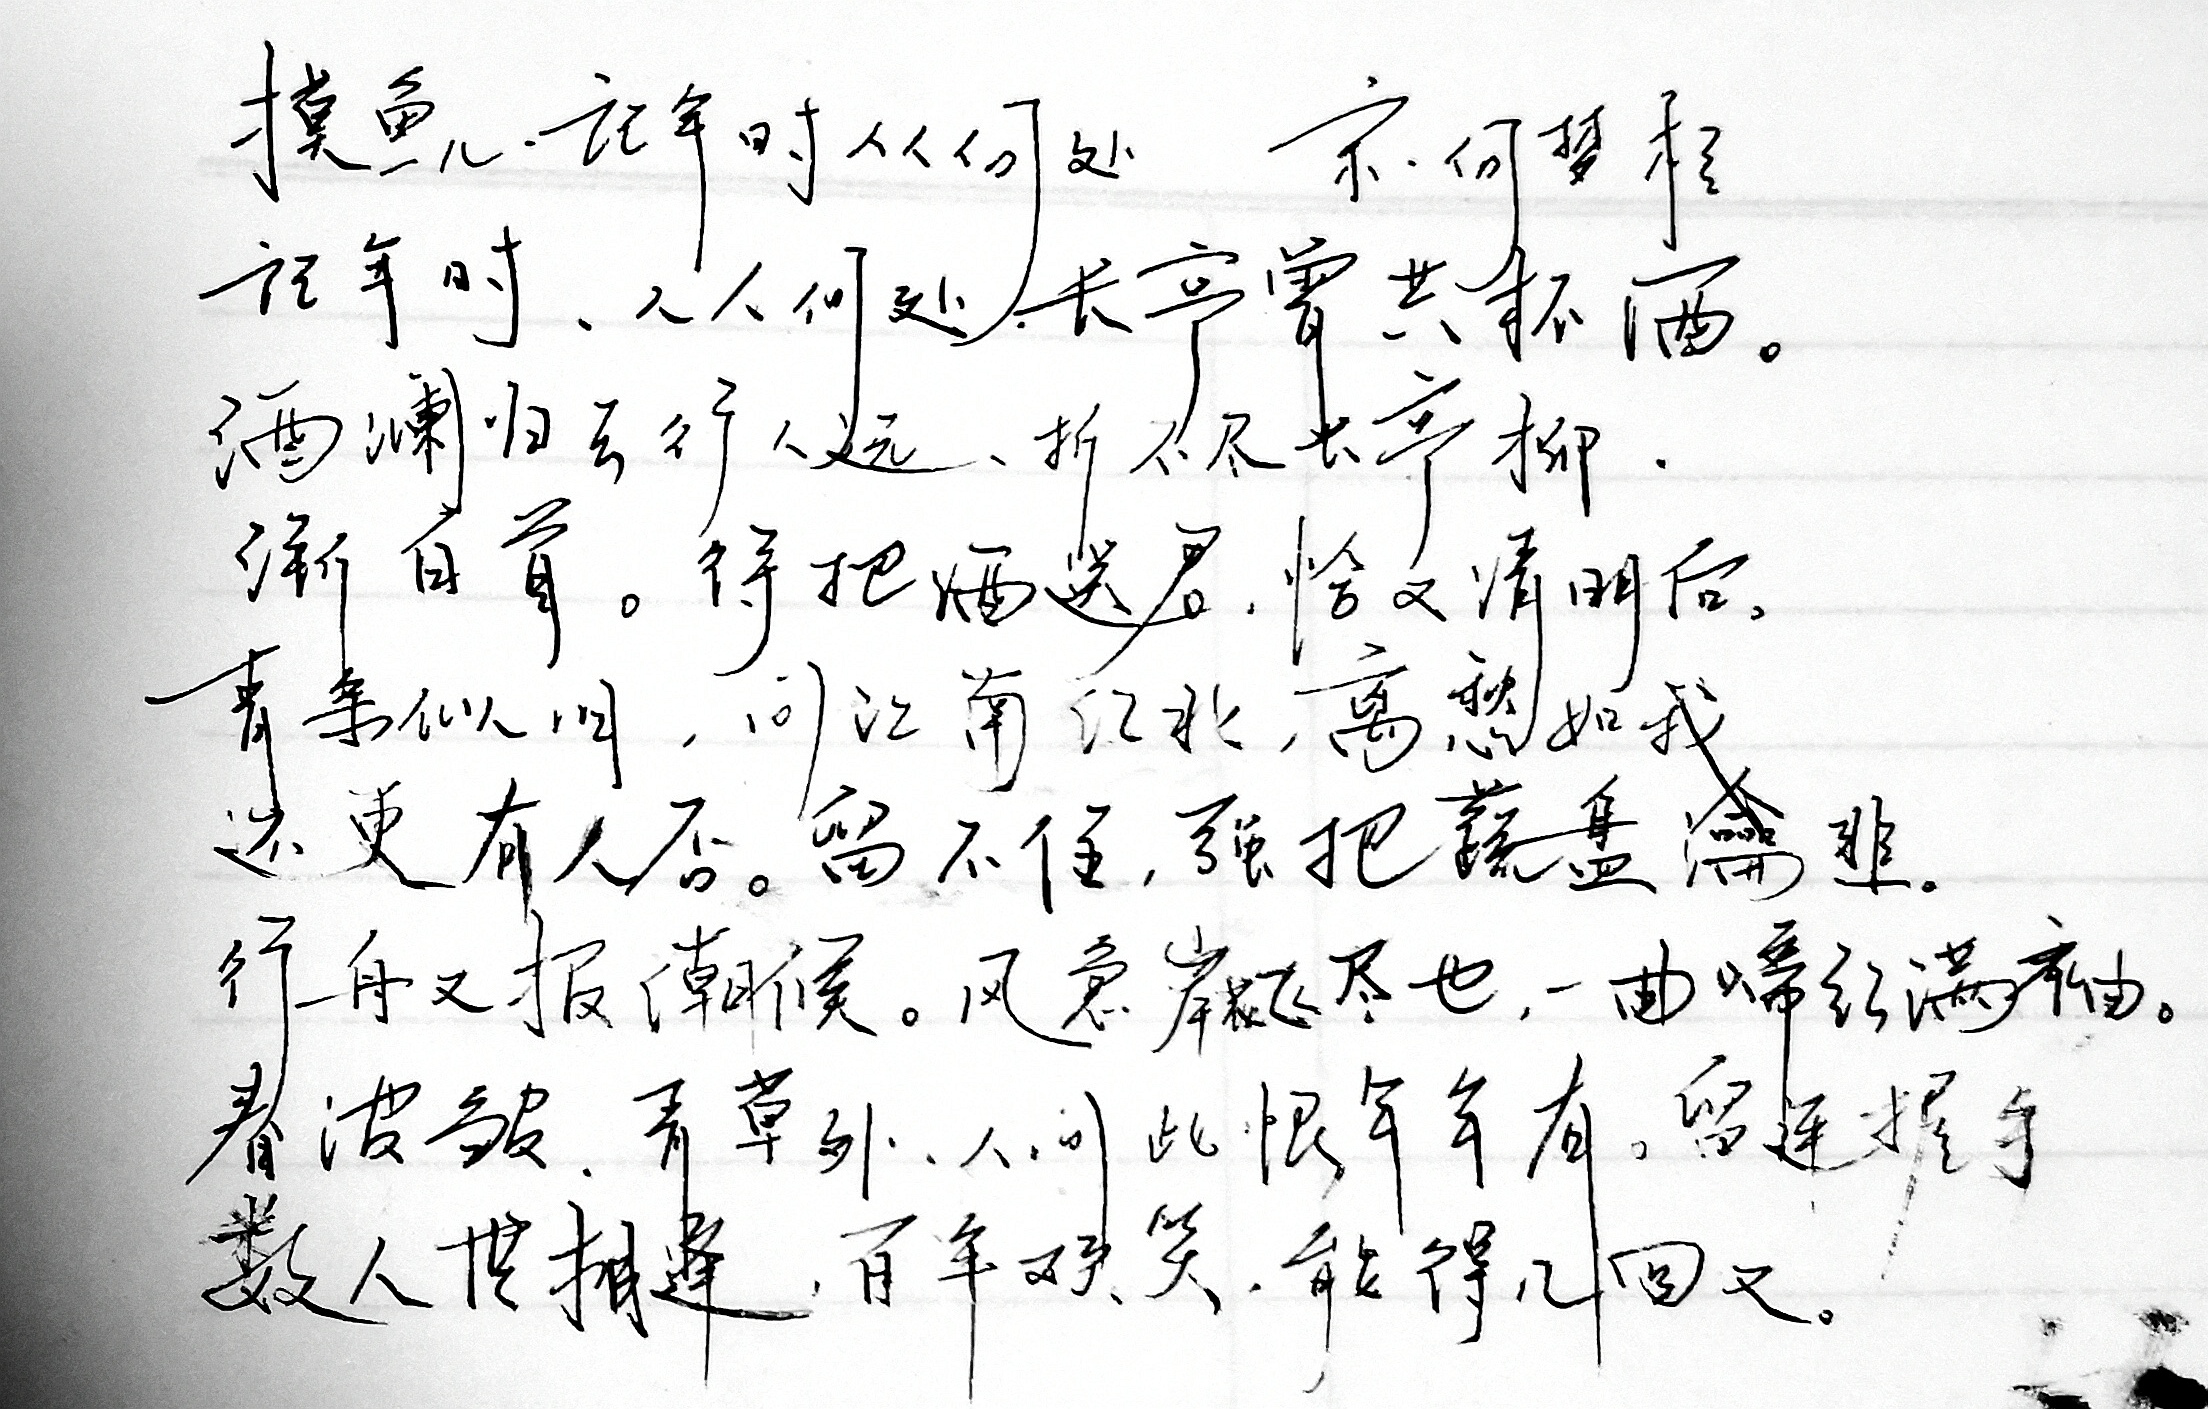 摸鱼儿·记年时人人何处 宋·何梦桂
记年时、人人何处,长亭曾共杯酒。
酒阑归去行人远,折不尽长亭柳.
渐白首。待把酒送君,恰又清明后。
青条似旧,问江南江北,离愁如我
还更有人否。留不住,强把蔬盘瀹韭。
行舟又报潮候。风急岸花飞尽也,一曲啼红满袖。
春波皱、青草外、人间此恨年年有。留连握手
数人世相逢,百年欢笑,能得几回又。